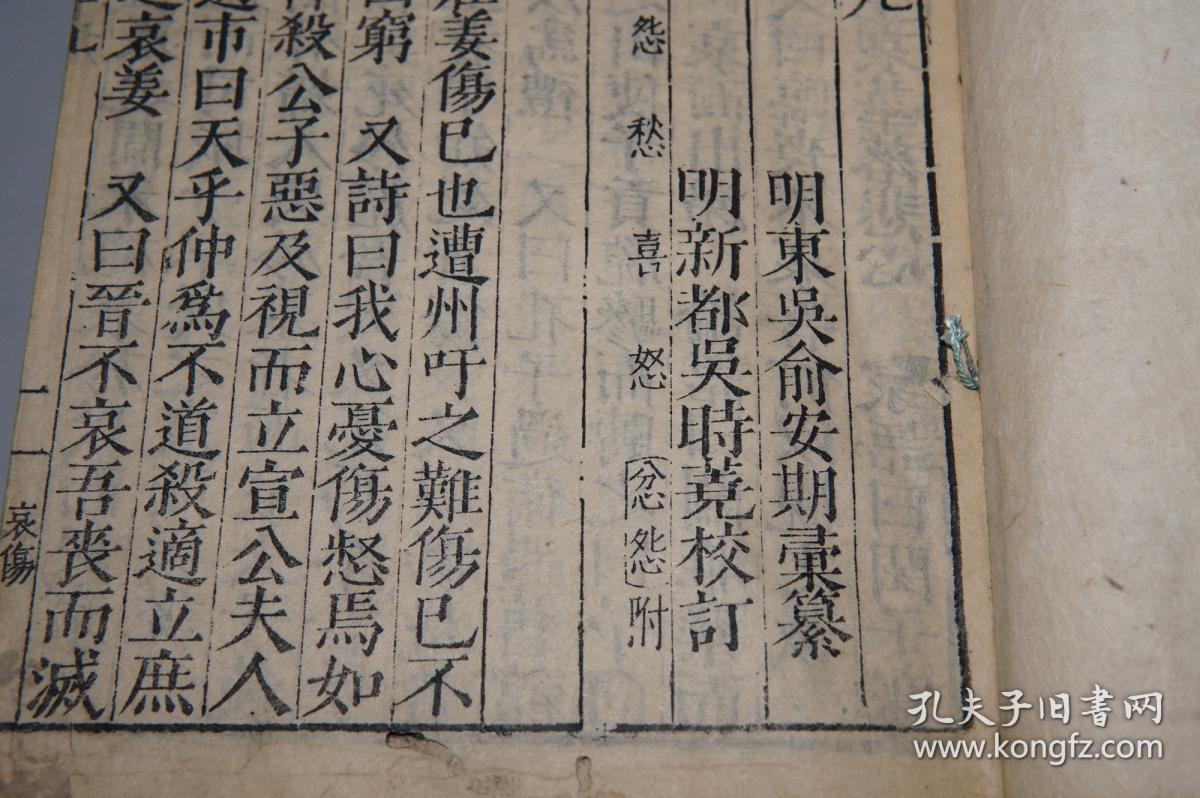 明東吳俞安期彙纂
明新都吳時蕘校訂
怨 愁 喜 怒 忿怨附
姜傷已也遭州吁之難傷已不
窮 又詩曰我心憂傷惄焉如
殺公子惡及視而立宣公夫人
市曰天乎仲爲不道殺適立庶
哀姜 又曰晉不哀吾喪而滅
哀傷
孔夫子旧书网
www.kongfz.com